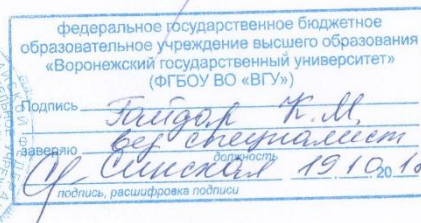 федеральное государственное бюджетное
образовательное учреждение высшего образования
«Воронежский государственный университет»
(ФГБОУ ВО «ВГУ»)
Подпись Гайдар К.М.
заверяю вед специалист
должность
Синская 19.10 2018
подпись, расшифровка подписи